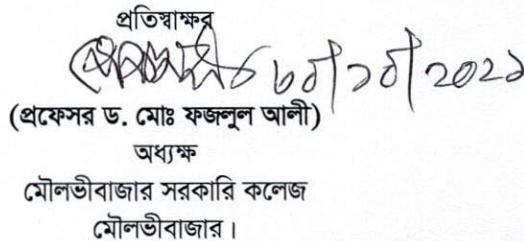 প্রতিস্বাক্ষর
৩০/১০/২০২১
(প্রফেসর ড. মোঃ ফজলুল আলী)
অধ্যক্ষ
মৌলভীবাজার সরকারি কলেজ
মৌলভীবাজার।